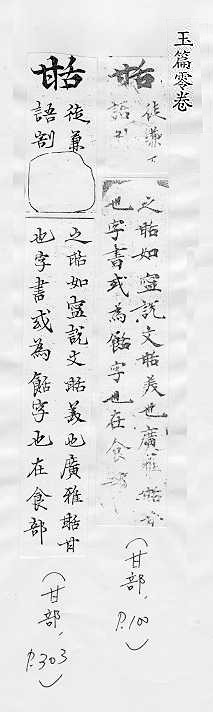 玉篇零卷
甛
徒蒹下
語
之甛如蜜說文甛美也廣雅甛甘
也字書或為餂字也在食部
(甘部, P.100)
甛
徒蒹
語割
之甛如蜜說文甛義也廣雅甛甘
也字書或為餂字也在食部
(甘部, P.303)